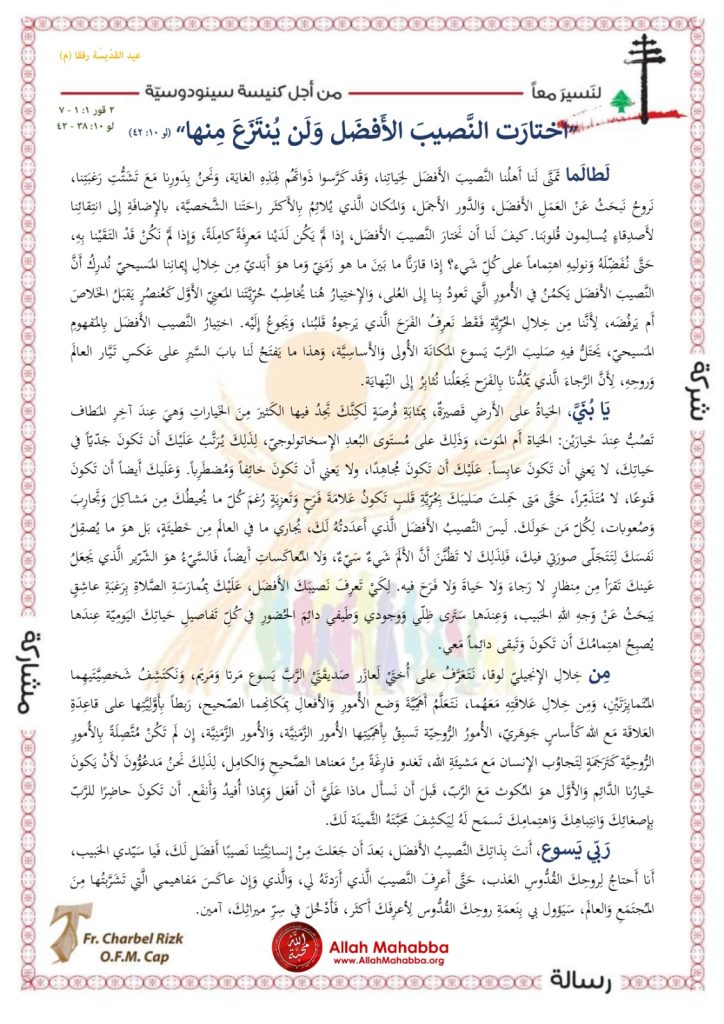 عيد القدّيسة رفقا (م)
لنَسيرَ معاً
من أجل كنيسة سينودوسيّة
٢ قور ١: ١ - ٧
لو ١٠: ٣٨ - ٤٢
"اختارَت النَّصيبَ الأَفضَل وَلَن يُنتَزَعَ مِنها" (لو ١٠: ٤٢)
لَطالَما تمَنَّى لَنا أَهلُنا النَّصيبَ الأَفضَل لِحَياتِنا، وَقَد كَرَّسوا ذَواتَهُم لِهَذِهِ الغايَة، وَنَحنُ بِدَورِنا مَعَ تَشَتُّتِ رَغبَتِنا،
نَروحُ نَبحَثُ عَنْ العَمَلِ الأَفضَل، والدَّور الأَجمَل، والمَكان الَّذي يُلائِمُ بِالأَكثَر راحَتَنا الشَّخصيَّة، بالإضافَةِ إِلى انتِقائِنا
لأَصدِقاءٍ يُسالِمون قُلوبَنا. كيفَ لَنا أَن نَختارَ النَّصيب الأَفضَل، إِذا لَمْ يَكُن لَدَينا مَعرِفَةٌ كامِلَةٌ، وَإِذا لَمْ نَكُنْ قَدْ التَقَيْنا بِهِ،
حَتَّى نُفَضِّلَهُ وَنوليهِ اهتِماماً على كُلِّ شَيء؟ إِذا قارَنَّا ما بَينَ ما هو زَمَنيّ وَما هوَ أَبَديّ مِن خِلالِ إِيمانِنا المَسيحيّ نُدرِكُ أَنَّ
النَّصيبَ الأَفضَل يَكمُنُ في الأُمورِ الَّتي تَعودُ بِنا إِلى العُلى، وَالإِختِيارُ هُنا يُخاطِبُ حُرّيَّتَنا المَعنيّ الأَوَّل كَعُنصُرٍ يَقبَلُ الخَلاصَ
أَم يَرفُضُه، لِأَنَّنا مِن خِلالِ الحُرّيَّةِ فَقَط نَعرِفُ الفَرَحَ الَّذي يَرجوهُ قَلبُنا، وَيَجوعُ إِلَيْه. اختِيارُ النَّصيب الأَفضَل بِالمَفهومِ
المَسيحيّ، يَحتَلُّ فيهِ صَليبُ الرَّبّ يَسوع المَكانَة الأُولى وَالأَساسيَّة، وَهذا ما يَفتَحُ لَنا بابَ السَّيرِ على عَكسِ تَيَّار العالَم
وَروحِهِ، لِأَنَّ الرَّجاءَ الَّذي يَمُدُّنا بِالفَرَح يَجعَلُنا نُثابِرُ إِلى النِّهايَة.
يا بُنَيَّ، الحَياةُ على الأَرضِ قَصيرَةٌ، بِمَثابَةِ فُرصَةٍ لَكِنَّكَ تَجِدُ فيها الكَثيرَ مِنَ الخَياراتِ وَهيَ عِندَ آخِرِ المَطاف
تَصُبُّ عِندَ خَيارَيْن: الحَياة أَم المَوت، وَذَلِكَ على مُستَوى البُعدِ الإِسخاتولوجيّ، لِذَلِكَ يُرَتَّبُ عَلَيْكَ أَن تَكونَ جَدّيّاً في
حَياتِكَ، لا يَعني أَن تَكونَ عابِساً. عَلَيْكَ أَن تَكونَ مُجاهِدًا، ولا يَعني أَن تَكونَ خائِفاً وَمُضطَرِباً. وَعَلَيكَ أَيضاً أَن تَكونَ
قَنوعًا، لا مُتَذَمِّراً، حَتَّى مَتى حَمِلتَ صَليبَكَ بِحُرّيَّةِ قَلبٍ تَكونُ عَلامَةَ فَرَحٍ وَتَعزِيَةٍ رُغمَ كُلّ ما يُحيطُكَ مِن مَشاكِلَ وَتَجارِبَ
وَصُعوبات، لِكُلّ مَن حَولَكَ. لَيسَ النَّصيبُ الأَفضَل الَّذي أَعدَدتُهُ لَكَ، يُجاري ما في العالَمِ مِن خَطيئَةٍ، بَل هوَ ما يُصقِلُ
نَفسَكَ لِتَتَجَلّى صورَتي فيكَ، فَلِذَلِكَ لا تَظُنَّنَ أَنَّ الأَلَمَ شَيءٌ سَيّءٌ، وَلا المُعاكَساتِ أَيضاً، فَالسَّيّءُ هوَ الشّرّير الَّذي يَجعَلُ
عَينَكَ تَقرَأُ مِن مِنظارٍ لا رَجاءَ وَلا حَياةَ وَلا فَرَحَ فيه. لِكَيْ تَعرِفَ نَصيبَكَ الأَفضَل، عَلَيْكَ بِمُمارَسَةِ الصَّلاةِ بِرَغبَةِ عاشِقٍ
يَبحَثُ عَنْ وَجهِ اللهِ الحَبيب، وَعِندَها سَتَرى ظِلّي وَوُجودي وَطَيفي دائِمَ الحُضورِ في كُلّ تَفاصيلِ حَياتِكَ اليَوميَّة عِندَها
يُصبِحُ اهتِمامُكَ أَن تَكونَ وَتَبقى دائِماً مَعي.
مِن خِلالِ الإِنجيليّ لوقا، نَتَعَرَّفُ على أُختَيْ لَعازَر صَديقَتَيْ الرَّبّ يَسوع مَرتا وَمَريَم، وَنَكتَشِفُ شَخصيَّتَيهِما
المُتَمايِزَتَيْن، وَمِن خِلالِ عَلاقَتِهِ مَعَهُما، نَتَعَلَّمُ أَهمّيَّةَ وَضعِ الأُمورِ وَالأَفعالِ بِمَكانِهِما الصّحيح، رَبطاً بِأَوَّليَّتِها على قاعِدَةِ
العَلاقَة مَع الله كَأَساسٍ جَوهَريّ، الأُمورُ الرُّوحيَّة تَسبِقُ بِأَهَمّيَّتِها الأُمور الزَّمَنيَّة، والأُمور الزَّمَنيَّة، إِن لَم تَكُنْ مُتَّصِلَةً بِالأُمورِ
الرُّوحيَّة كَتَرجَمَةٍ لِتَجاوُبِ الإِنسان مَع مَشيئَةِ الله، تَغدو فارِغَةً مِنْ مَعناها الصَّحيحِ والكامِل، لِذَلِكَ نَحنُ مَدعُوُّونَ لأَنْ يَكونَ
خَيارَنا الدَّائِم والأَوَّل هوَ المُكوث مَعَ الرَّبّ، قَبلَ أَن نَسأَل ماذا عَلَيَّ أَن أَفعَل وَبِماذا أُفيدُ وَأَنفَع. أَن تَكونَ حاضِرًا للرَّبّ
بِإِصغائِكَ وَانتِباهِكَ وَاهتِمامِكَ تَسمَح لَهُ لِيَكشِفَ مَحَبَّتَهُ الثَّمينَة لَكَ.
رَبّي يَسوع، أَنتَ بِذاتِكَ النَّصيبُ الأَفضَل، بَعدَ أَن جَعَلتَ مِنْ إِنسانيَّتِنا نَصيبًا أَفضَل لَكَ، فَيا سَيّدي الحَبيب،
أَنا أَحتاجُ لِروحِكَ القُدُّوسِ العَذب، حَتَّى أَعرِفَ النَّصيبَ الَّذي أَرَدتَهُ لي، وَالَّذي وَإِن عاكَسَ مَفاهيمي الَّتي تَشَرَّبتُها مِنَ
المُجتَمَعِ وَالعالَم، سَيَؤول بي بِنَعمَةِ روحِكَ القُدُّوس لِأَعرِفَكَ أَكثَر، فَأَدخُلَ في سِرّ ميراثِكَ، آمين.
شركة
مشاركة
رسالة
Fr. Charbel Rizk
O.F.M. Cap
الله محبة
Allah Mahabba
www.AllahMahabba.org